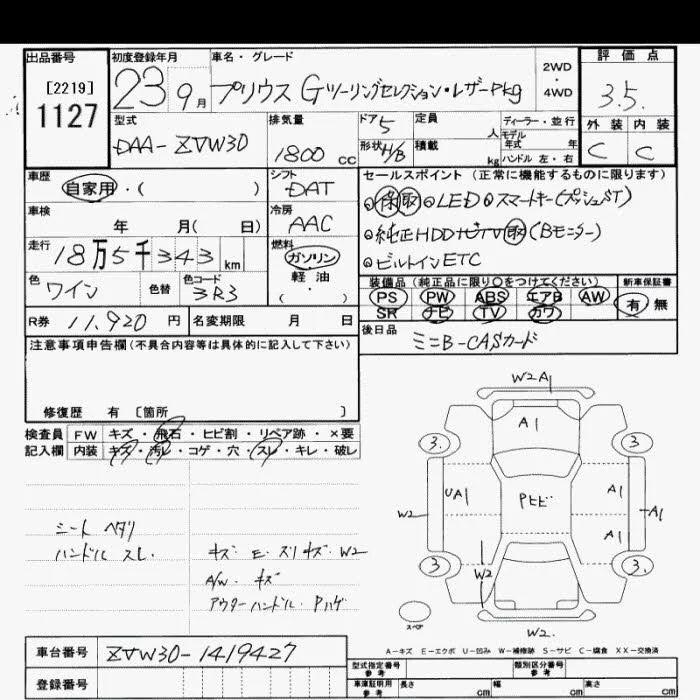 出品番号 初度登録年月 車名・グレード 2WD・4WD 評価点
[2219] 1127 23 9月 プリウス Gツーリングセレクション・レザーPkg 3.5.
型式 排気量 ドア 5 定員 人 ディーラー・並行 外装 内装
DAA-ZVW30 1800 cc 形状 H/B 積載 kg モデル年式 年 ハンドル 左・右 C C
車歴 シフト セールスポイント (正常に機能するものに限ります)
自家用・( ) DAT
車検 冷房 ◎保取◎LED◎スマートキー(プッシュST)
年 月( 日) AAC ◎純正HDDナビTV取(Bモニター)
走行 燃料 ◎ビルトインETC
18万5千343km ガソリン
色 色替 色コード 軽油
ワイン 3R3 ・( )
装備品 (純正品に限り○をつけてください) 新車保証書
PS PW ABS エアB AW 有 無
SR ナビ TV カワ
R券 11,920 円 名変期限 月 日 後日品 ミニB-CASカード
注意事項申告欄 (不具合内容等は具体的に記入して下さい)
修復歴 有 〔箇所 〕
検査員 FW キズ・飛石・ヒビ割・リペア跡・×要
記入欄 内装 キズ・汚れ・コゲ・穴・スレ・キレ・破レ
シート ヘタリ
ハンドル スレ. キズ E. ズリキズ W2
A/W. キズ
アウターハンドル. Pハゲ
W2 A1
A1
3. 3
W2 UA1 Pヒビ A1 A1
A1
3. W2 3.
スペア W2.
A-キズ E-エクボ U-凹み W-補修跡 S-サビ C-腐食 XX-交換済
車台番号 ZVW30-1419427
登録番号 型式指定番号 参考 類別区分番号 参考
車庫証明用 参考 長さ cm 幅 cm 高さ cm